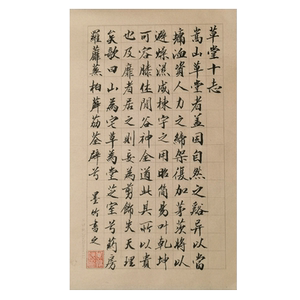 草堂十志
嵩山草堂者盖因自然之谿阜以當
墉洫資人力之締架復加茅茨將以
避燥濕成棟宇之用昭簡易叶乾坤
可容膝休閒谷神全道此其所以貴
也及靡者居之則妄為剪飾失天理
矣歌曰山為宅草為堂芝室兮葯房
羅蘼蕪柏薜荔荃壁兮 墨竹書之